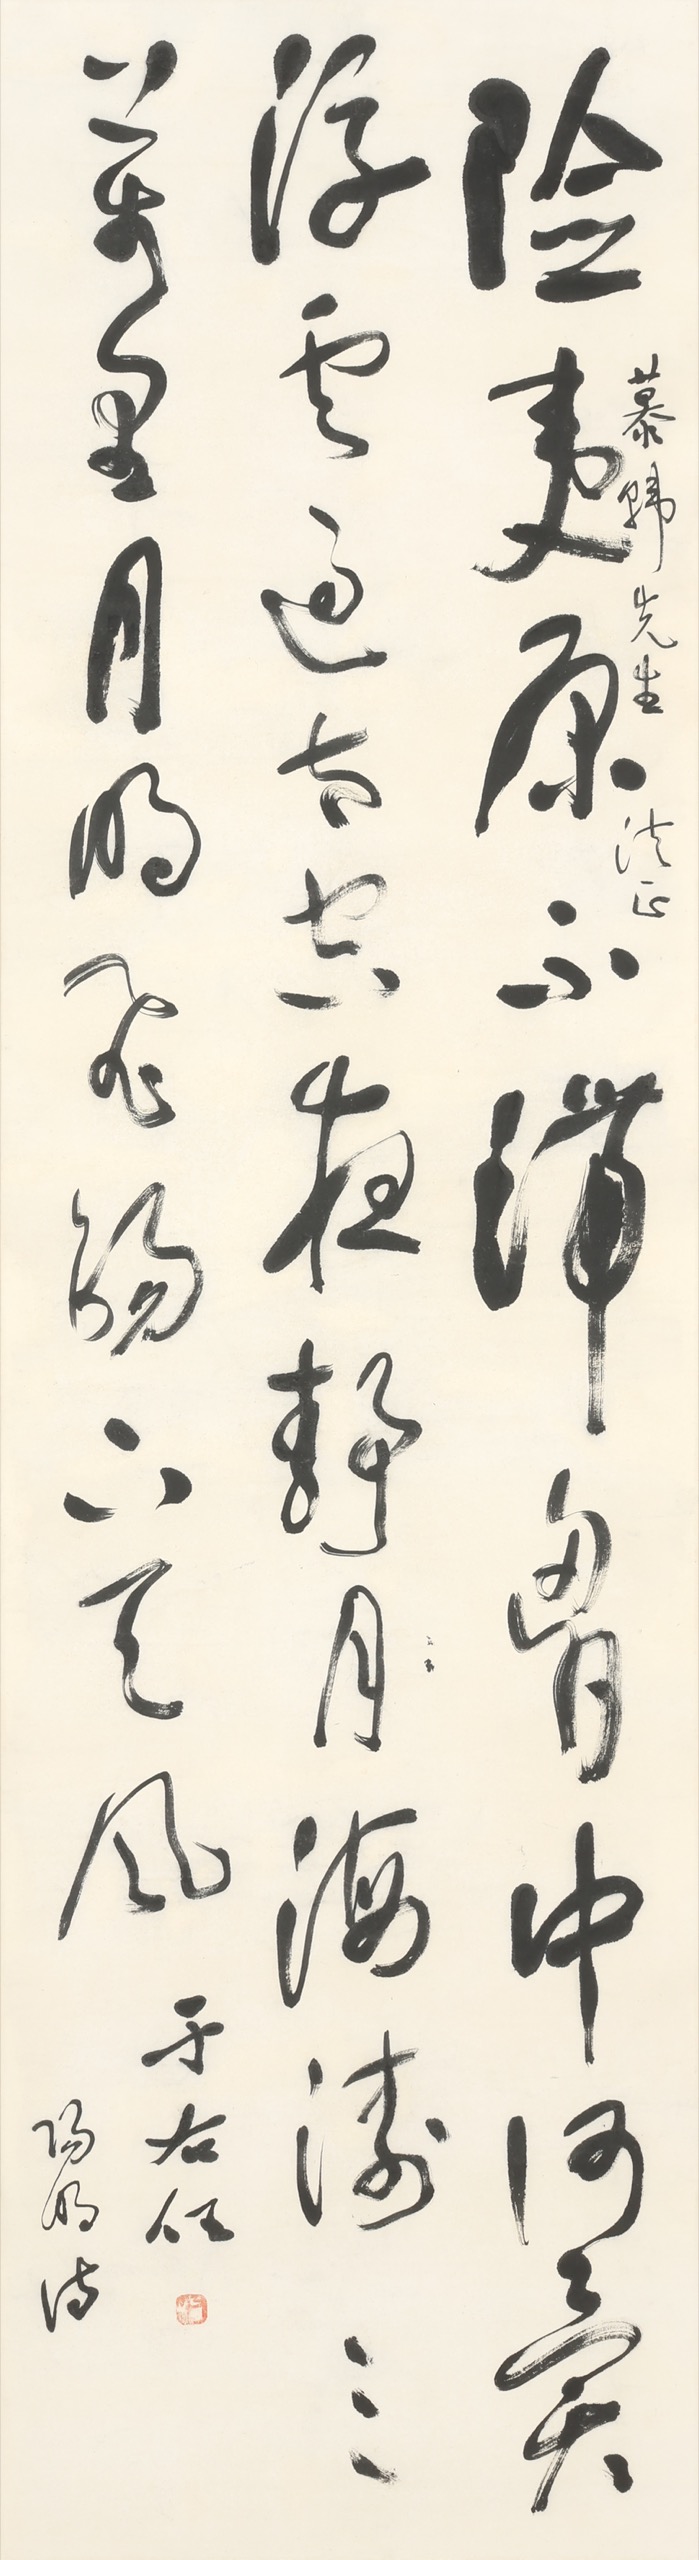 慕韓先生法正
險夷原不滯胷中何異
浮雲過太空夜靜月海濤三
萬里月明飛錫下天風
于右任
陽明詩